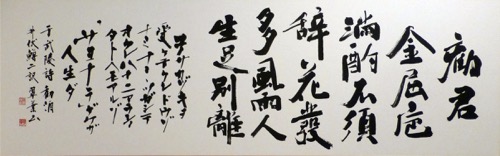 勧君
金屈巵
満酌不須
辞花發
多風雨人
生足別離
コノサカヅキヲ
受ケテクレドウゾ
ナミナミツガシテ
オクレハナニアラシノ
タトヘモアルゾ
サヨナラダケガ
人生ダ
于武陵詩 勧酒
井伏鱒二訳